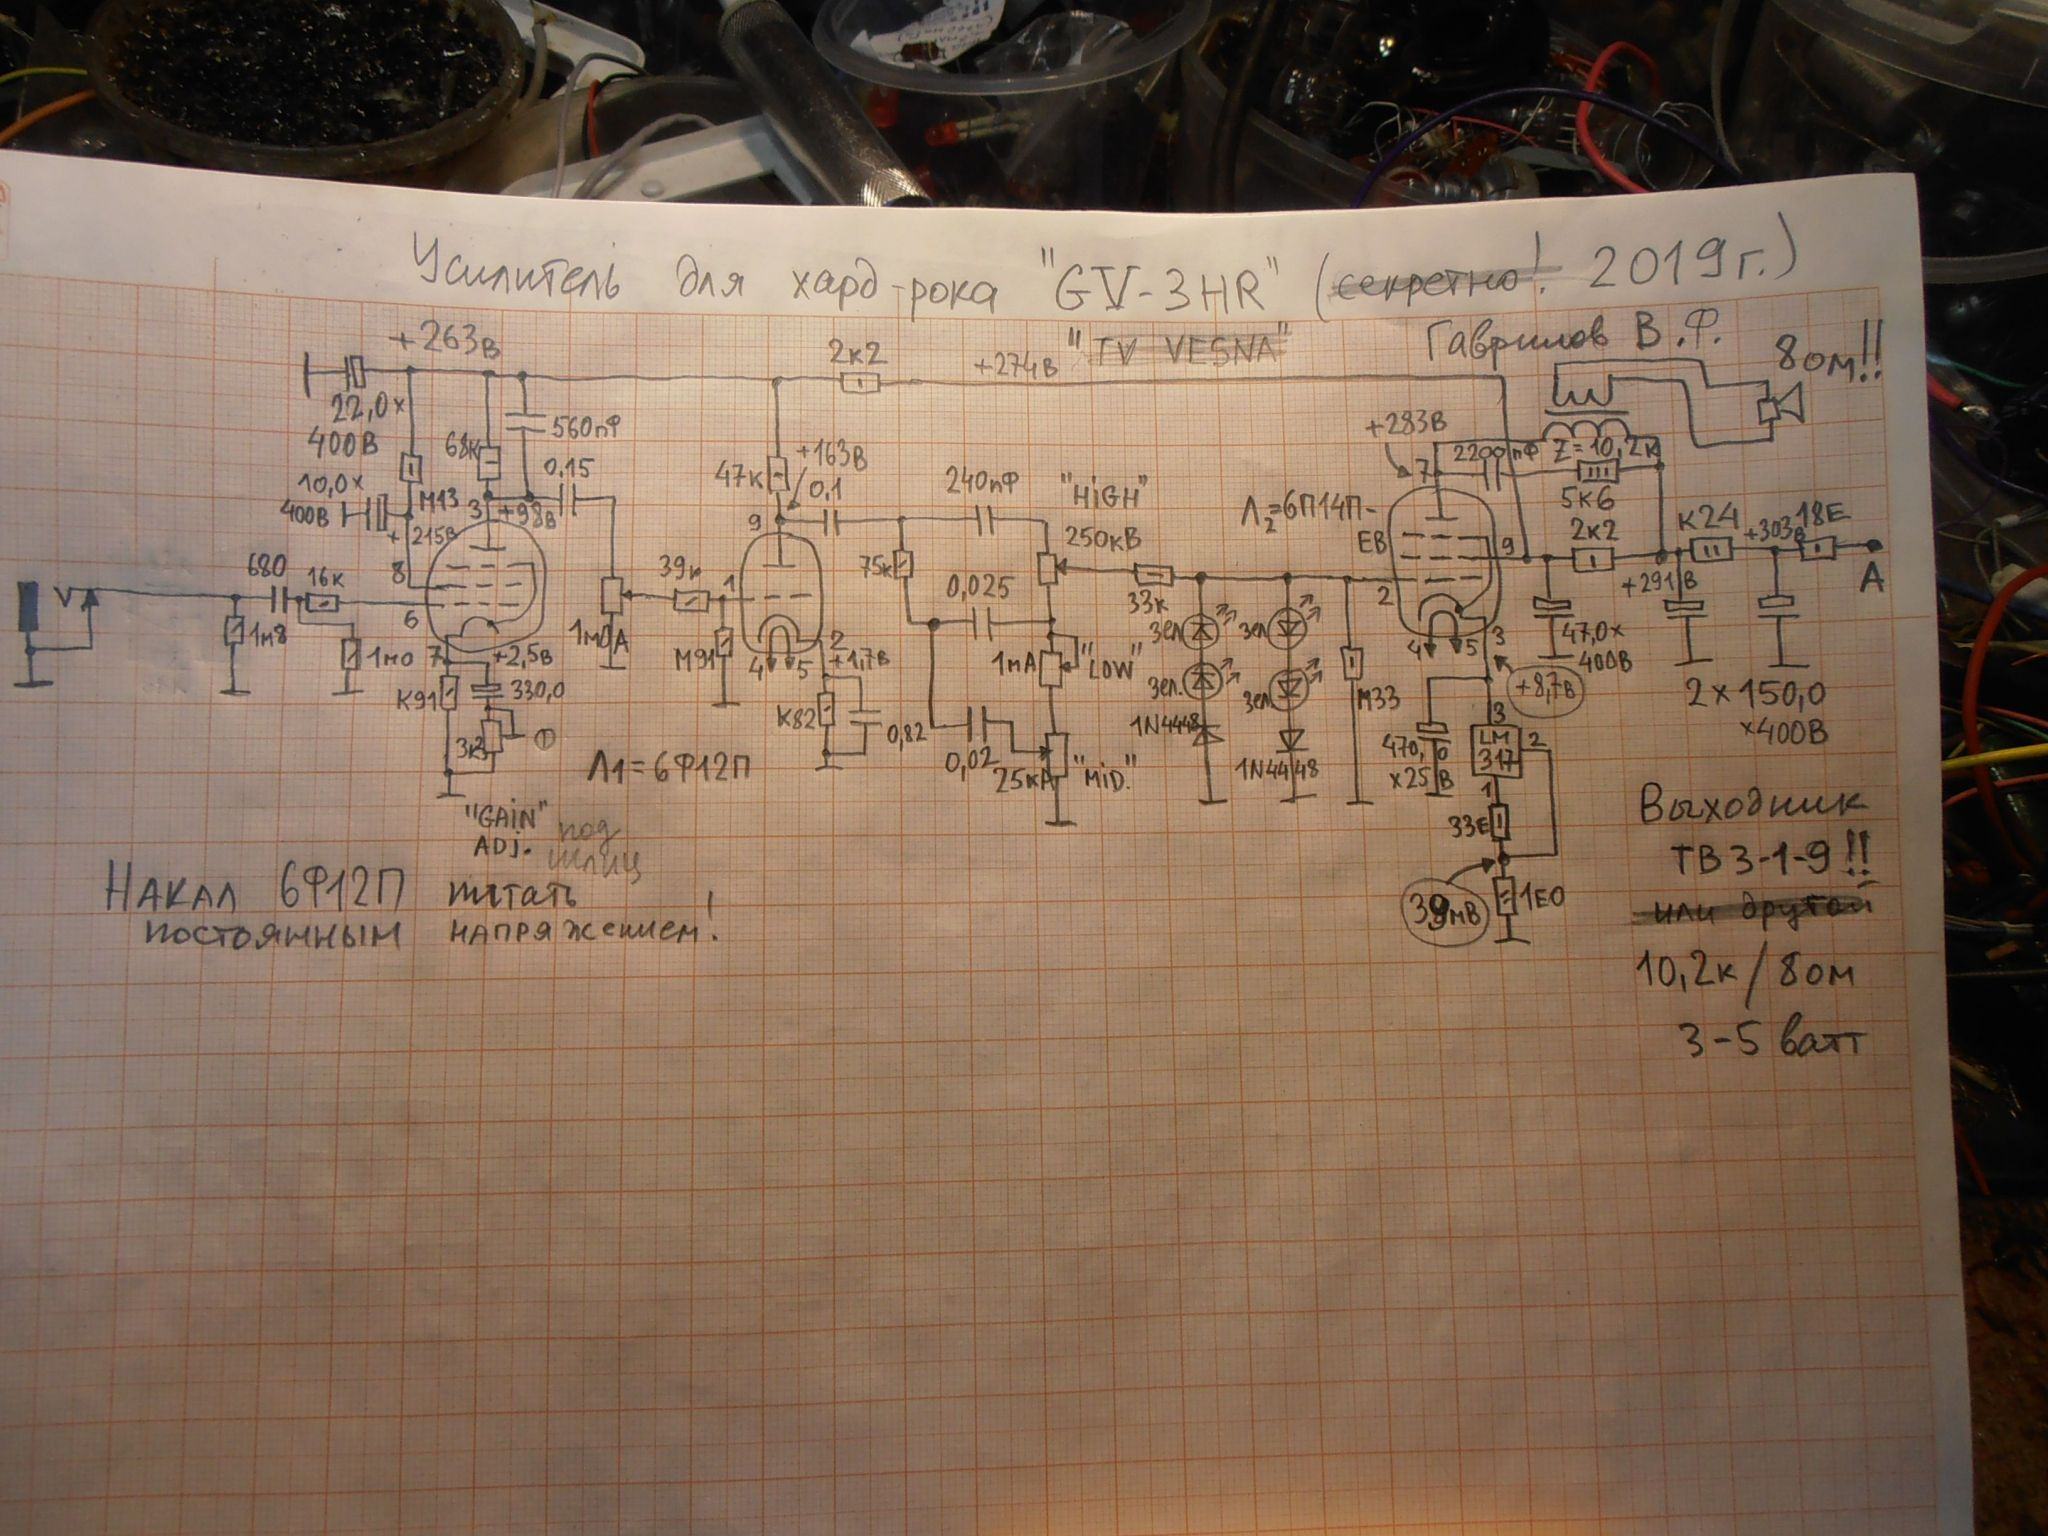 Усилитель для хард-рока "GV-3HR" (секретно! 2019г.)
"TV VESNA"
Гаврилов В.Ф.
8ом!!
+263в
22,0х
400В
68к
560пФ
10,0х
400В
М13
+215В
3
+98в
0,15
8
680
16к
6
1м8
1м0
7
+2,5в
К91
330,0
3к3
"GAIN"
ADJ.
под
шлиц
1м0А
39к
М91
1
Л1=6Ф12П
2к2
+274в
47к
+163в
0,1
9
4
5
2
+1,7в
К82
0,82
240пФ
"HiGH"
250кВ
75к
0,025
1мА
"LOW"
0,02
25кА
"MiD."
33к
зел
зел.
1N4448
зел
зел
1N4448
М33
Л2=6П14П-
ЕВ
+283В
7
2200пФ
Z=10,2к
5к6
9
2к2
К24
+303в
18Е
А
+291в
2
4
5
3
+8,7в
47,0х
400В
2х150,0
х400В
470,0
х25В
3
LM
317
2
1
33Е
39мВ
1Е0
Накал 6Ф12П питать
постоянным напряжением!
Выходник
ТВ3-1-9!!
или другой
10,2к/8ом
3-5 ватт